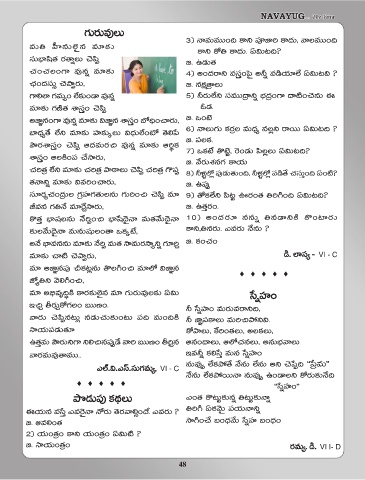 NAVAYUG
గురువులు
మతి హీనులైన మాకు
సుభాషిత రత్నాలు చెప్పి
చంచలంగా వున్న మాకు
ఛందస్సు చెప్పారు,
గానిగా గమ్యం లేకుండా వున్న
మాకు గణిత శాస్త్రం చెప్పి
అజ్ఞానంగా వున్న మాకు విజ్ఞాన శాస్త్రం బోధించారు,
బాధ్యతే లేని మాకు హక్కులు విధులేంటో తెలిపే
పౌరశాస్త్రం చెప్పి ఆదమరచి వున్న మాకు ఆర్థిక
శాస్త్రం ఆలకింప చేసారు,
చరిత్ర లేని మాకు చరిత్ర పాఠాలు చెప్పి చరిత్ర గొప్ప
తనాన్ని మాకు వివరించారు,
సూర్యచంద్రుల గ్రహగతులను గురించి చెప్పి మా
జీవన గతినే మార్చేసారు,
కొత్త భాషలను నేర్పించి భాషేదైనా మతమేదైనా
కులమేదైనా మనుషులంతా ఒక్కటే,
అనే భావనను మాకు నేర్పి మత సామరస్యాన్ని గూర్చి
మాకు చాటి చెప్పారు,
మా అజ్ఞానపు చీకట్లను తొలగించి మాలో విజ్ఞాన
జ్యోతిని వెలిగించి,
మా అభివృద్ధికి కారకులైన మా గురువులకు ఏమి
ఇచ్చి తీర్చుకోగలం ఋణం.
వారు చెప్పినట్లు నడుచుకుంటు పది మందికి
సాయపడుతూ
ఉత్తమ పౌరునిగా నిలిచినప్పుడే వారి ఋణం తీర్చిన
వారమవుతాము.
ఎల్.వి.ఎస్.సుగమ్య, VI - C
పొడుపు కథలు
ఈయన వస్తే ఎవరైనా నోరు తెరవాల్సిందే. ఎవరు ?
జ. ఆవలింత
2) యంత్రం కాని యంత్రం ఏమిటి ?
జ. సాయంత్రం
3) నామముంది కాని పూజారి కాదు, వాలముంది
కాని కోతి కాదు. ఏమిటది?
జ. ఉడుత
4) అందరాని వస్త్రంపై అన్నీ వడియాలే ఏమిటవి ?
జ. నక్షత్రాలు
5) నీరులేని సముద్రాన్ని భద్రంగా దాటించేను ఈ
ఓడ.
జ. ఒంటె
6) నాలుగు కర్రల మధ్య నల్లని రాయి ఏమిటది ?
జ. పలక.
7) ఒకటే తొట్టె, రెండు పిల్లలు ఏమిటది?
జ. వేరుశనగ కాయ
8) నీళ్ళల్లో పుడుతుంది, నీళ్ళల్లో పడితే చస్తుంది ఏంటి?
జ. ఉప్పు
9) తోకలేని పిట్ట ఊరంత తిరిగింది ఏమిటది?
జ. ఉత్తరం.
10) అందరూ నన్ను తినడానికి కొంటారు
కాని,తినరు. ఎవరు నేను ?
జ. కంచం
డి. లాస్య - VI - C
స్నేహం
నీ స్నేహం మరువరానిది,
నీ జ్ఞాపకాలు మరిచిపోనివి.
కోపాలు, కేరింతలు, అలకలు,
ఆనందాలు, ఆలోచనలు, అనుభవాలు
ఇవన్నీ కలిస్తే మన స్నేహం
నువ్వు లేకపోతే నేను లేను అని చెప్పేది "ప్రేమ"
నేను లేకపోయినా నువ్వు ఉండాలని కోరుకునేది
"స్నేహం"
ఎంత కొట్టుకున్న తిట్టుకున్నా
తిరిగి ఏకమై పయనాన్ని
సాగించే బంధమే స్నేహ బంధం
రమ్య. డి. VI I- D
48